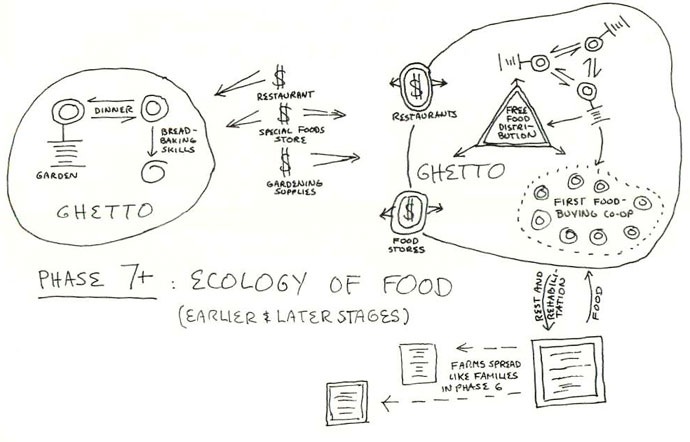 DINNER
BREAD-
BAKING
SKILLS
GARDEN
GHETTO
$
RESTAURANT
$
SPECIAL FOODS
STORE
$
GARDENING
SUPPLIES
$
RESTAURANTS
FREE
FOOD
DISTRI-
BUTION
GHETTO
$
FOOD
STORES
FIRST FOOD-
BUYING CO-OP
PHASE 7+ : ECOLOGY OF FOOD
(EARLIER & LATER STAGES)
REST AND
REHABILI-
TATION
FOOD
FARMS SPREAD
LIKE FAMILIES
IN PHASE 6